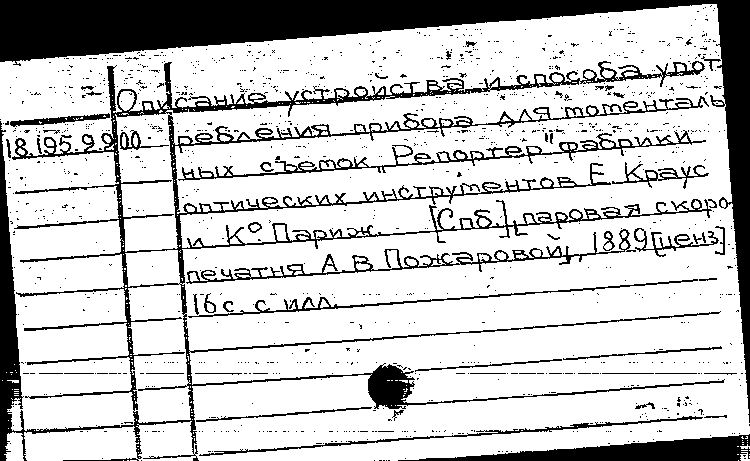 Описание устройства и способа упот-
18.195.9.900. ребления прибора для моменталь
ных съемок „Репортер" фабрики
оптических инструментов Е. Краус
и К° Париж. [Спб.], паровая скоро
печатня А. В Пожаровой, 1889 [ценз]
16 с. с илл.